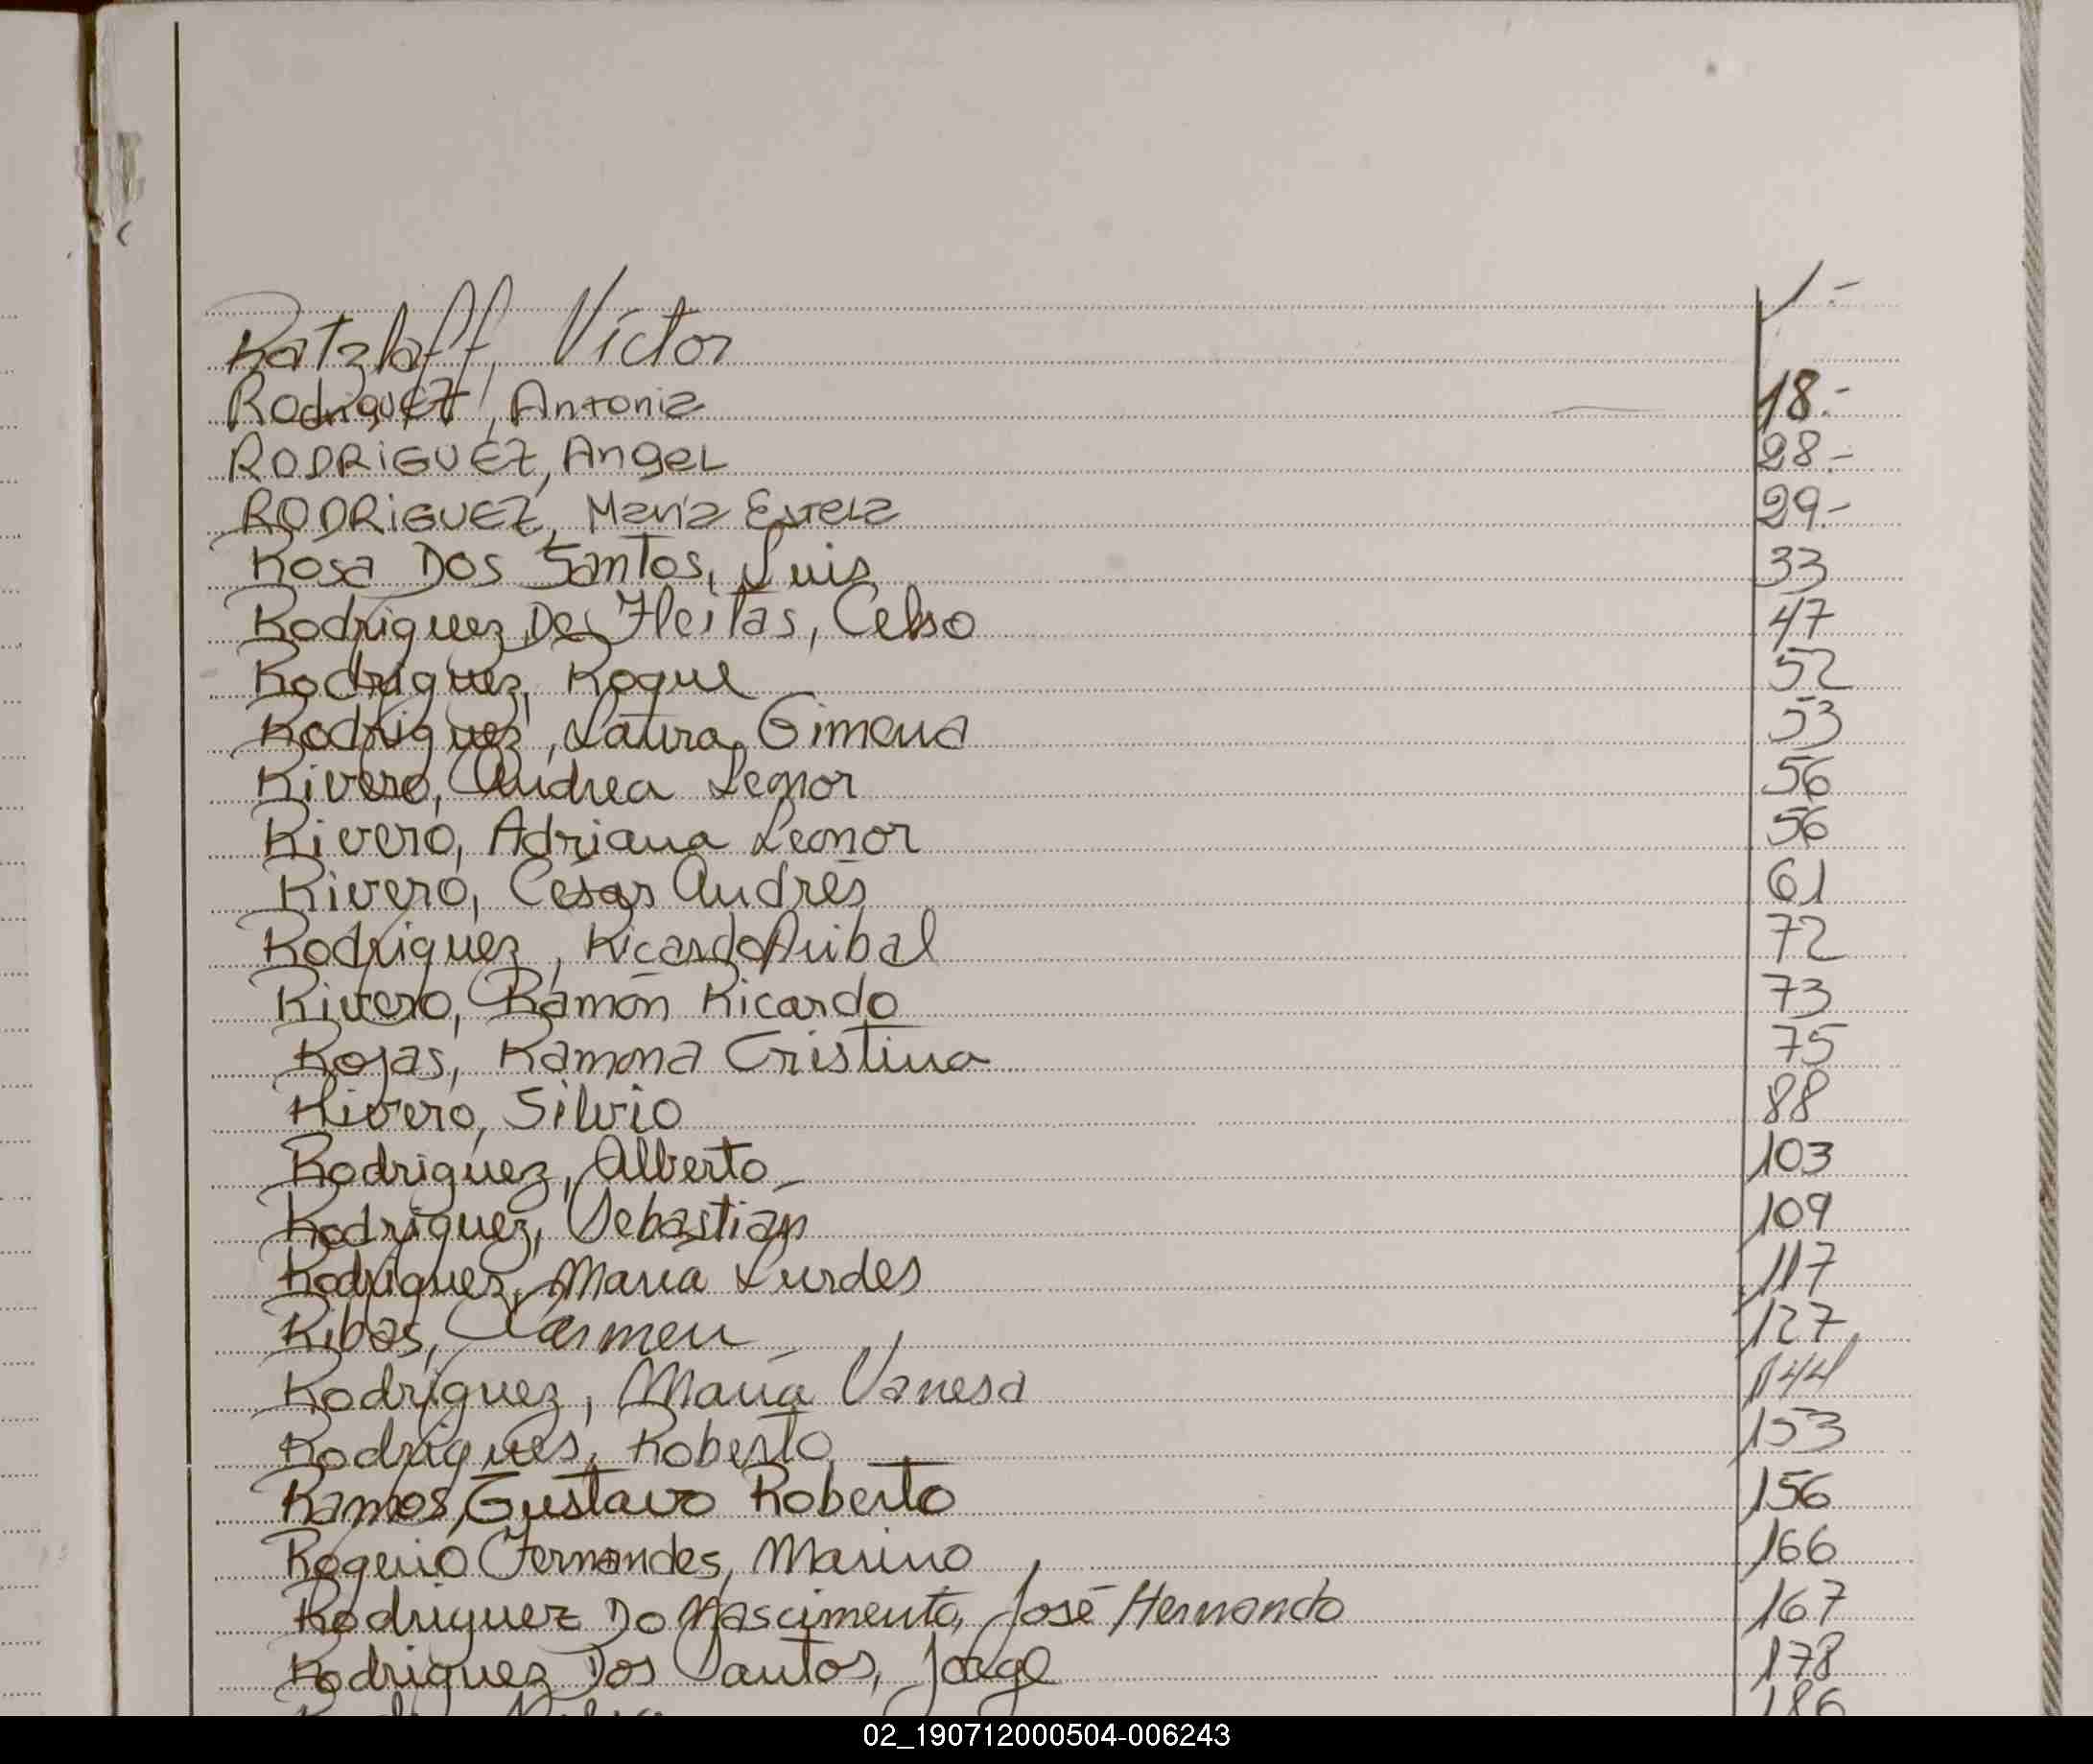 Ratzlaff, Víctor 1.-
Rodriguez, Antonia 18.-
RODRiGUEZ, Angel 28.-
RODRiGUEZ, María Estela 29.-
Rosa Dos Santos, Luis 33
Rodriguez De Fleitas, Celso 47
Rodriguez, Roque 52
Rodriguez, Laura Gimena 53
Rivero, Andrea Leonor 56
Rivero, Adriana Leonor 56
Rivero, Cesar Andrés 61
Rodriguez, Ricardo Anibal 72
Rivero, Ramón Ricardo 73
Rojas, Ramona Cristina 75
Rivero, Silvio 88
Rodriguez, Alberto 103
Rodriguez, Sebastian 109
Rodriguez, Maria Lurdes 117
Ribas, Carmen 127
Rodríguez, María Vanesa 144
Rodrigues, Roberto 153
Ramos, Gustavo Roberto 156
Rogerio Fernandes, Marino 166
Rodriguez Do Nascimento, José Hernando 167
Rodriguez Dos Santos, Jorge 178
186
02_190712000504-006243